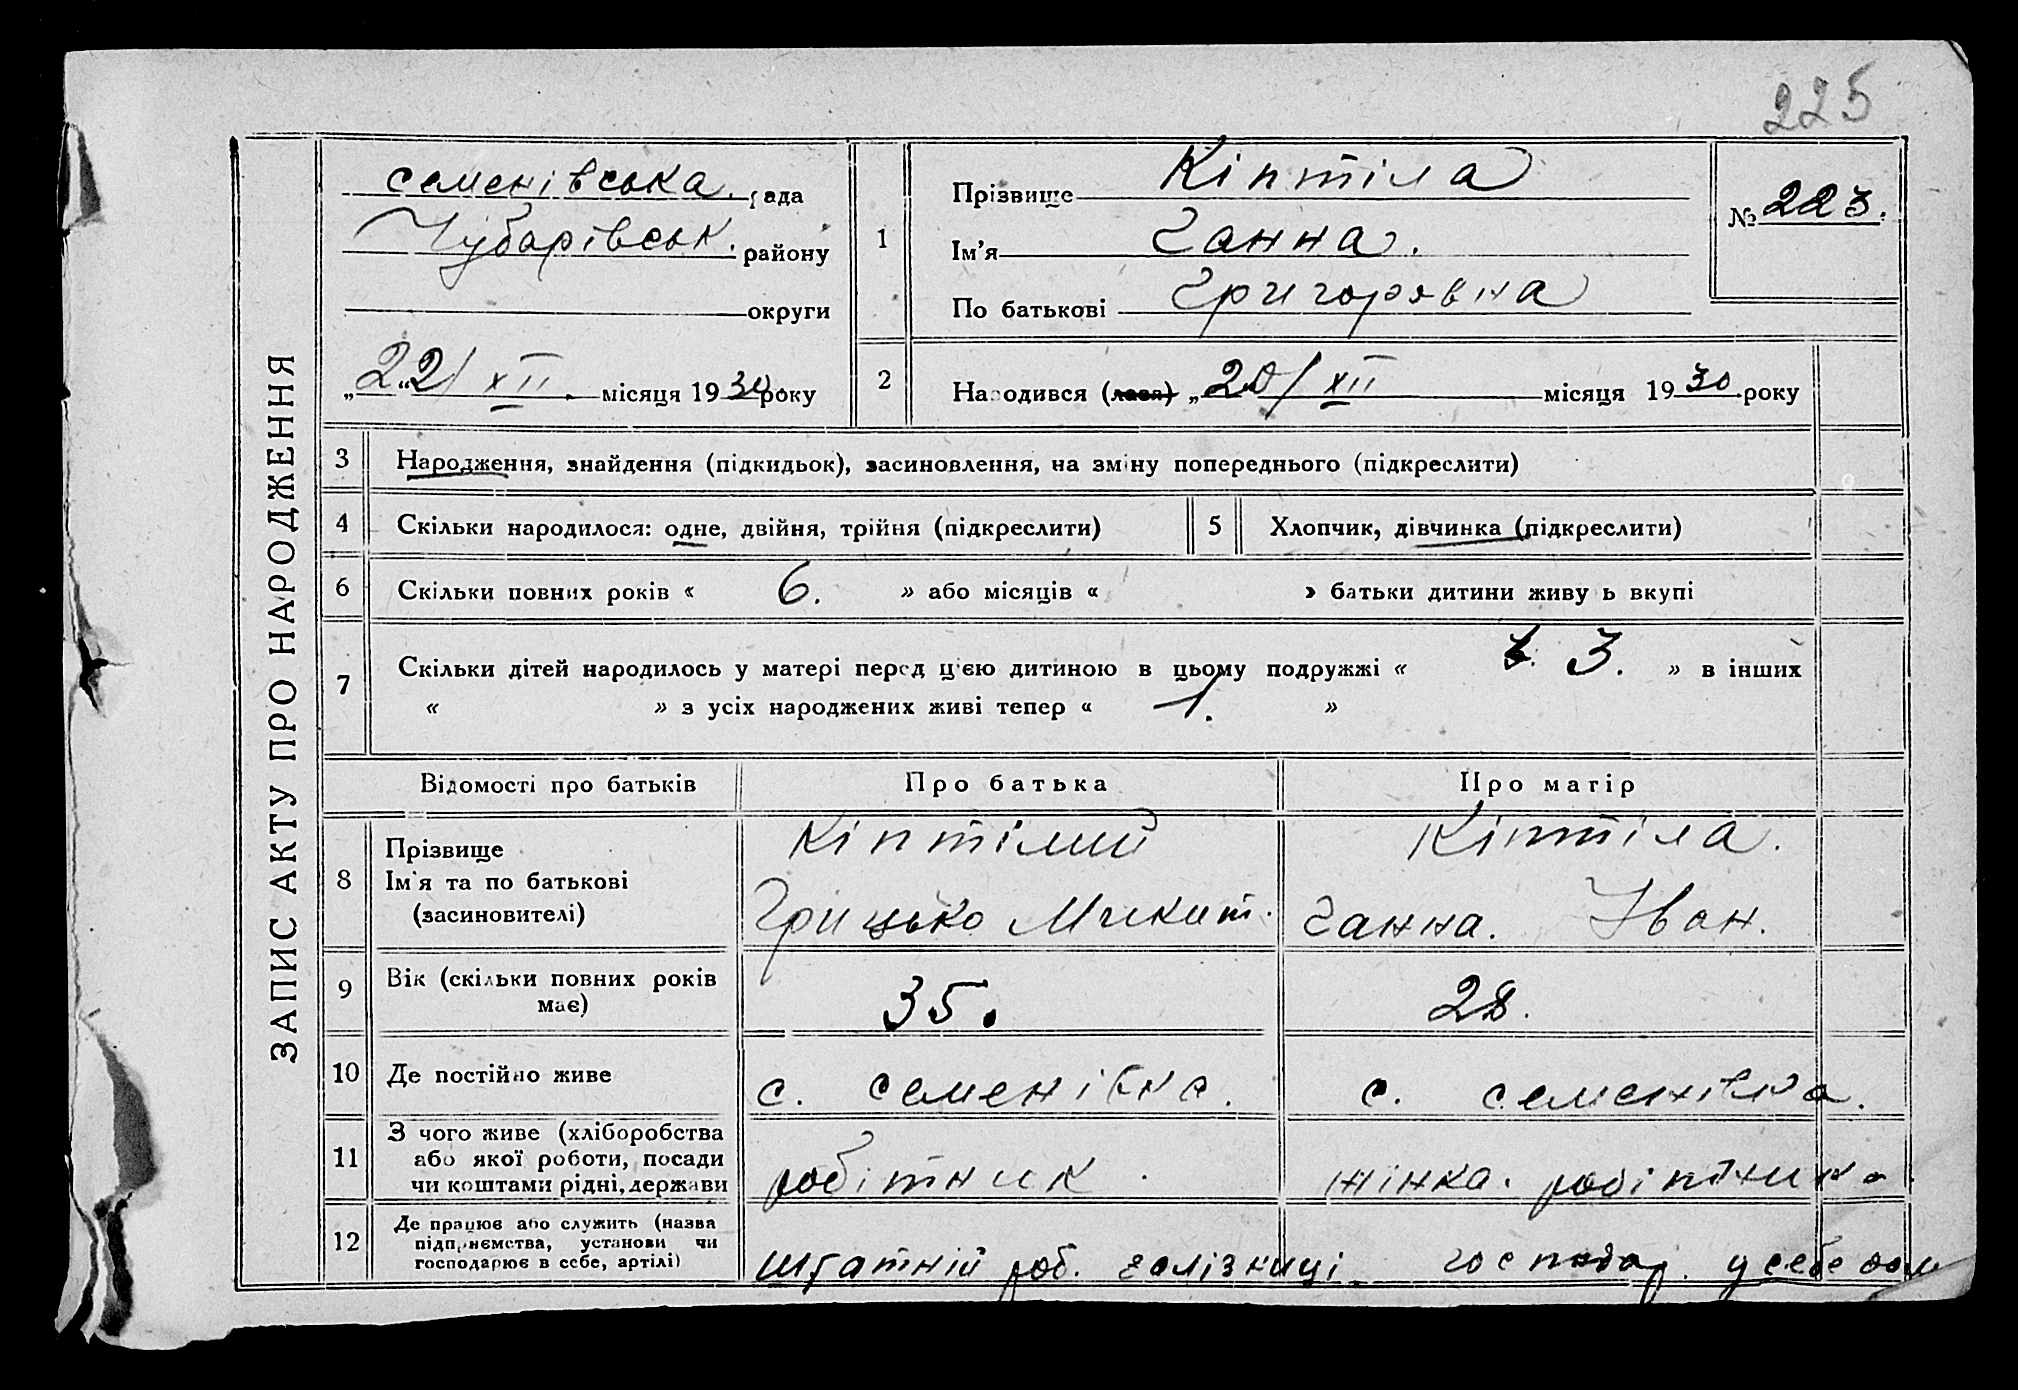 225
ЗАПИС АКТУ ПРО НАРОДЖЕННЯ
семенівська рада
Чубарівськ. району
округи
„22/XII. місяця 1930 року
1
Прізвище Кіптіла
Ім'я Ганна.
По батькові Григоровна
№ 223.
2
Народився (лася) „20/XII місяця 1930 року
3 Народження, знайдення (підкидьок), засиновлення, на зміну попереднього (підкреслити)
4 Скільки народилося: одне, двійня, трійня (підкреслити) 5 Хлопчик, дівчинка (підкреслити)
6 Скільки повних років « 6. » або місяців « » батьки дитини живу ь вкупі
7 Скільки дітей народилось у матері перед цією дитиною в цьому подружжі « 3. » в інших
« » з усіх народжених живі тепер « 1. »
Відомості про батьків Про батька Про матір
8 Прізвище
Ім'я та по батькові
(засиновителі)
Кіптілий
Грицько Микит.
Кіптіла.
Ганна. Іван.
9 Вік (скільки повних років
має)
35.
28.
10 Де постійно живе с. семенівка. с. семенівка.
11 З чого живе (хліборобства
або якої роботи, посади
чи коштами рідні, держави
робітник.
жінка. робітника
12 Де працює або служить (назва
підприємства, установи чи
господарює в себе, артілі)
штатній роб. залізниці.
господар. у себе дом